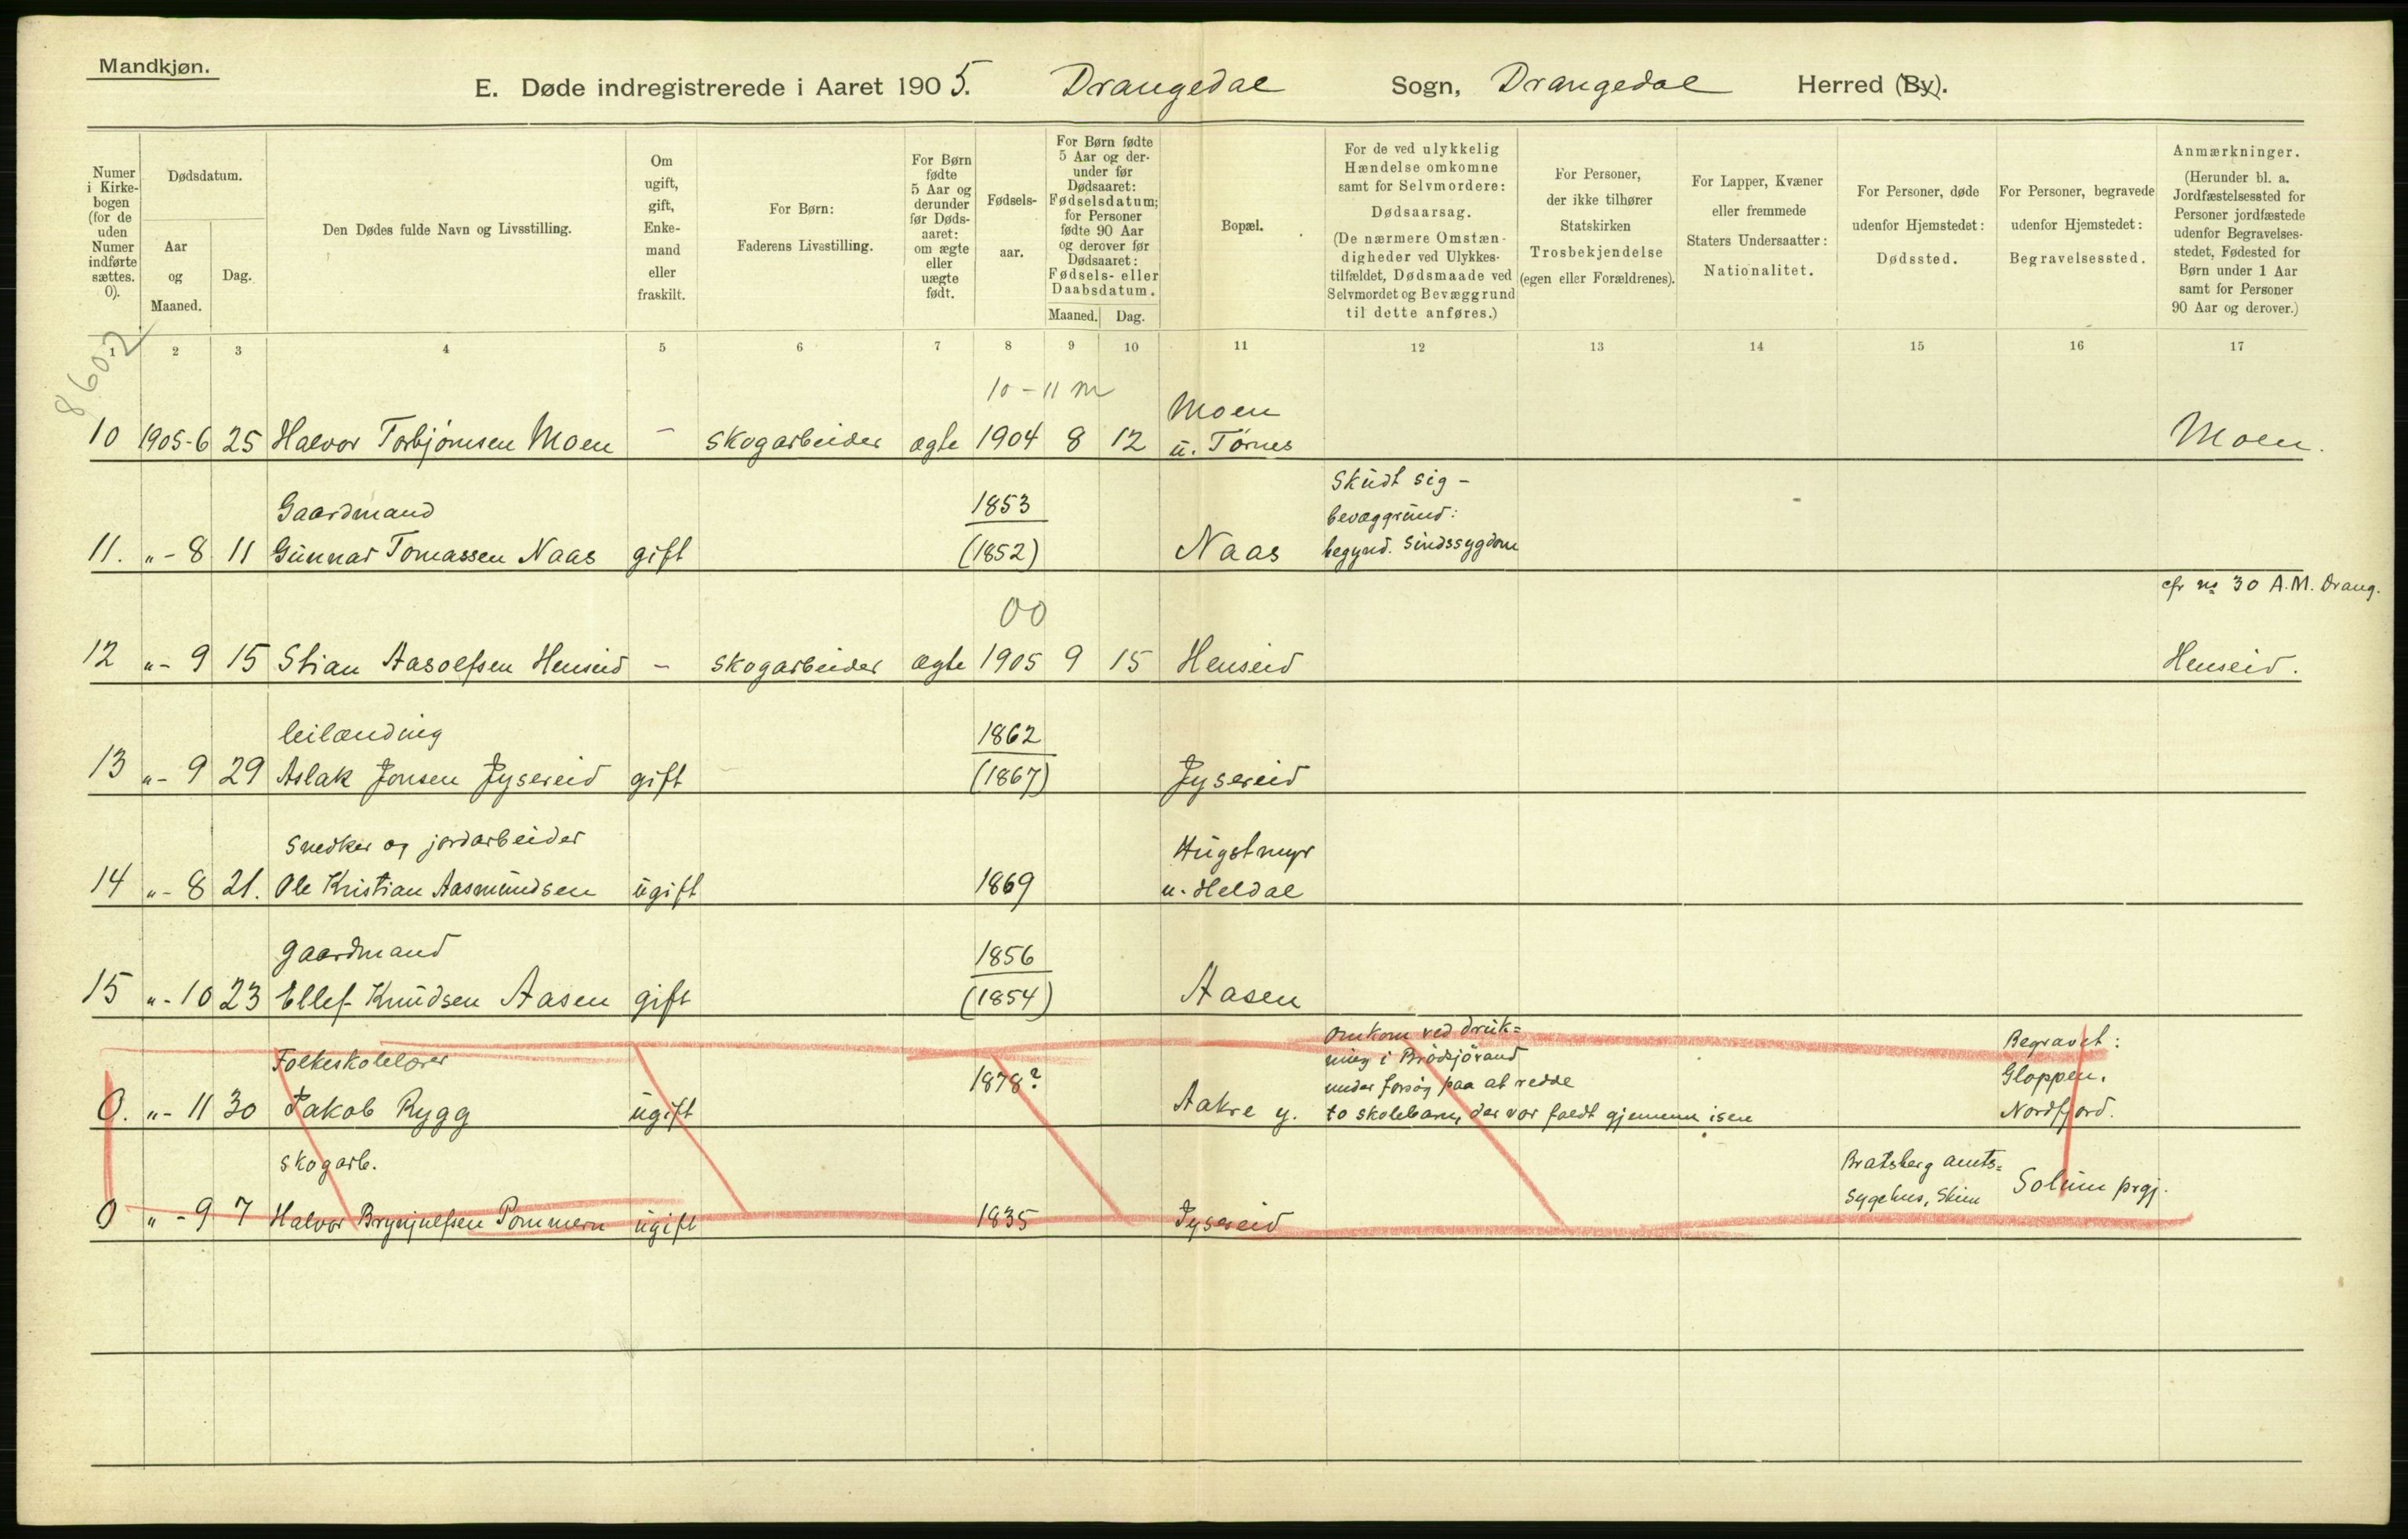 Mandkjøn.
E. Døde indregistrerede i Aaret 1905. Drangedal Sogn, Drangedal Herred (By).
Numer i Kirkebogen (for de uden Numer indførte sættes. 0).
Dødsdatum.
Aar og Maaned.
Dag.
Den Dødes fulde Navn og Livsstilling.
Om ugift, gift, Enkemand eller fraskilt.
For Børn: Faderens Livsstilling.
For Børn fødte 5 Aar og derunder før Dødsaaret: om ægte eller uægte født.
Fødselsaar.
For Børn fødte 5 Aar og derunder før Dødsaaret: Fødselsdatum; for Personer fødte 90 Aar og derover før Dødsaaret: Fødsels- eller Daabsdatum.
Maaned. Dag.
Bopæl.
For de ved ulykkelig Hændelse omkomne samt for Selvmordere: Dødsaarsag. (De nærmere Omstændigheder ved Ulykkestilfældet, Dødsmaade ved Selvmordet og Bevæggrund til dette anføres.)
For Personer, der ikke tilhører Statskirken Trosbekjendelse (egen eller Forældrenes).
For Lapper, Kvæner eller fremmede Staters Undersaatter: Nationalitet.
For Personer, døde udenfor Hjemstedet: Dødssted.
For Personer, begravede udenfor Hjemstedet: Begravelsessted.
Anmærkninger. (Herunder bl. a. Jordfæstelsessted for Personer jordfæstede udenfor Begravelsesstedet, Fødested for Børn under 1 Aar samt for Personer 90 Aar og derover.)
1 2 3 4 5 6 7 8 9 10 11 12 13 14 15 16 17
8602
10 - 11 m
Moen
10 1905-6 25 Halvor Torbjørnsen Moen - skogarbeider ægte 1904 8 12 u. Törnes Moen.
Skudt sig -
Gaardmand 1853 bevæggrund:
11. " - 8 11 Gunnar Tomassen Naas gift (1852) Naas begynd. sindssygdom
cfr no 30 A.M. Drang.
00
12 " - 9 15 Stian Aasolfsen Henseid - skogarbeider ægte 1905 9 15 Henseid Henseid.
leilænding 1862
13 " - 9 29 Aslak Jonsen Jysereid gift (1867) Jysereid
Snedker og jordarbeider Hugstmyr
14 " - 8 21. Ole Kristian Aasmundsen ugift 1869 u. Heldal
gaardmand 1856
15 " - 10 23 Ellef Knudsen Aasen gift (1854) Aasen
Omkom ved druk=
Begravet:
Folkeskolelærer ning i
1878? under forsøg paa at redde Gloppen.
0. " - 11 30 Jakob Rygg ugift Aakre y. to skolebarn, der var faldt gjennem isen Nordfjord.
skogarb. Bratsberg amts=
sygehus, Skien Solum prgj.
0 " - 9 7 Halvor Brynjulfsen Pommern ugift 1835 Jysereid